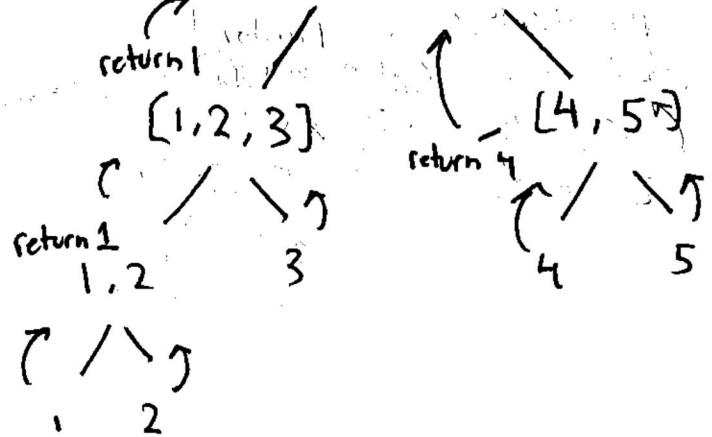 return 1
[1,2,3]
[4,5]
return 4
return 1
1,2
3
4
5
1
2